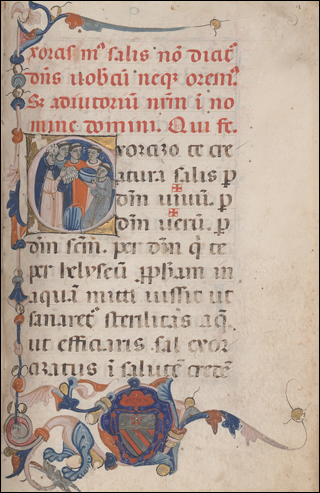 xorcis mᵒ salis nõ dicat᷑
dñs uobcũ neq; orem᷑
S; adiutoriũ nrm̃ ĩ no
mine domini. Qui fe.
Exorcizo te cre
atura salis p
dm̃ uiuũ. p
dm̃ uerũ. p
dm̃ scm̃. per dm̃ q̃ te
per helyseũ ꝓphãm in
aquã mitti iussit ut
sanaret᷑ sterilitas aq̃.
ut efficiaris sal exor
cizatus ĩ salutẽ credẽ